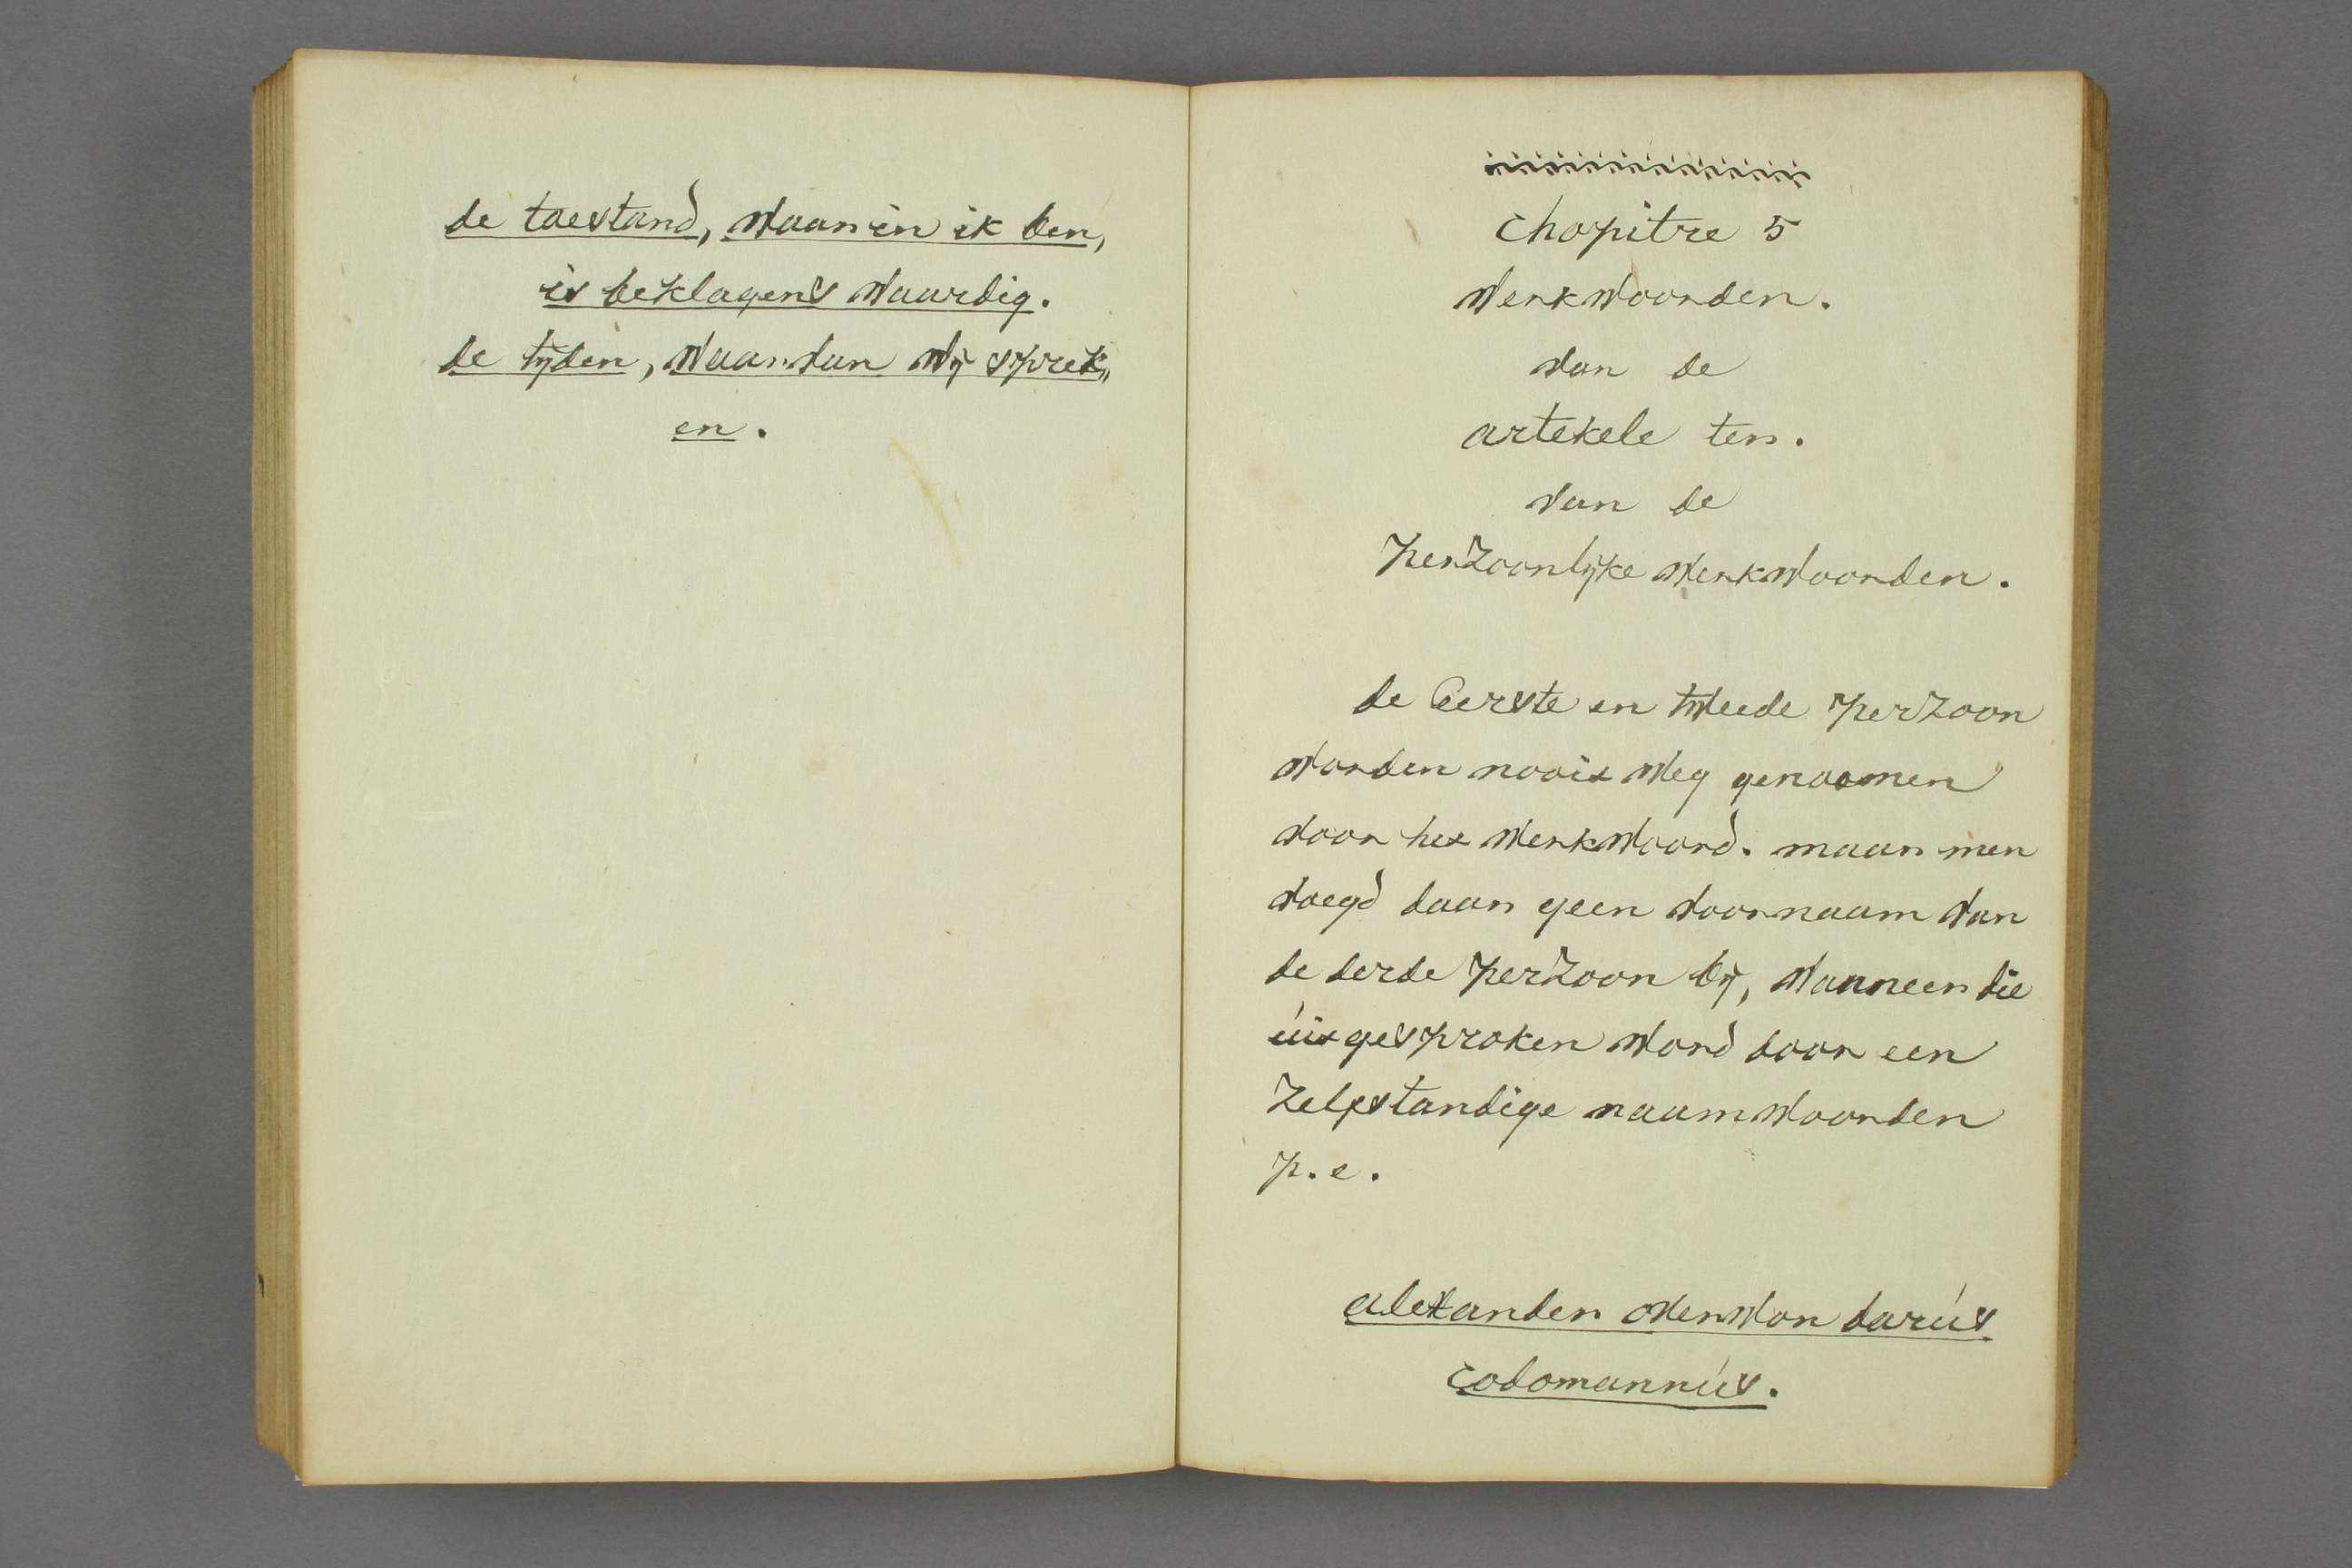 de toestand, waar in ik ben,
is beklagens waardig.
de tijden, waar van wij sprek„
en.
chopitre 5
werkwoorden.
van de
artekele ten.
van de
perzoonlijke werkwoorden.
de Eerste en tweede perzoon
worden nooit weg genoomen
voor het werkwoord. maar men
voegd daar geen voornaam van
de derde perzoon bij, wanneer die
úit gesproken word door een
zelfstandige naamwoorden
p. e.
alexander overwon darús
codomannús.